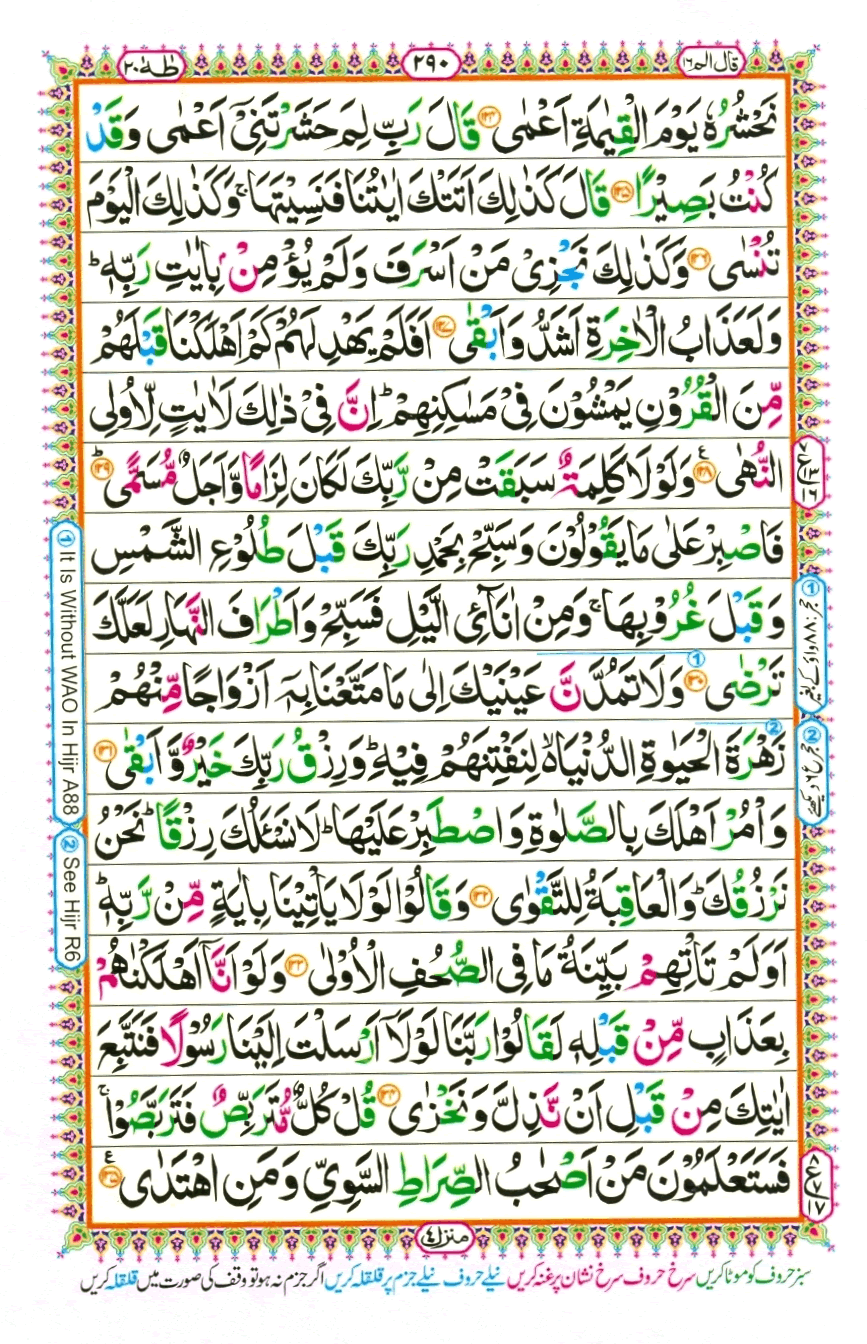 قال الم ١٦
٢٩٠
طٰهٰ ٢٠
نَحْشُرُهٗ يَوْمَ الْقِيٰمَةِ اَعْمٰى ۝١٢٤ قَالَ رَبِّ لِمَ حَشَرْتَنِيْۤ اَعْمٰى وَقَدْ
كُنْتُ بَصِيْرًا ۝١٢٥ قَالَ كَذٰلِكَ اَتَتْكَ اٰيٰتُنَا فَنَسِيْتَهَا ۚ وَكَذٰلِكَ الْيَوْمَ
تُنْسٰى ۝١٢٦ وَكَذٰلِكَ نَجْزِيْ مَنْ اَسْرَفَ وَلَمْ يُؤْمِنْۢ بِاٰيٰتِ رَبِّهٖ ؕ
وَلَعَذَابُ الْاٰخِرَةِ اَشَدُّ وَاَبْقٰى ۝١٢٧ اَفَلَمْ يَهْدِ لَهُمْ كَمْ اَهْلَكْنَا قَبْلَهُمْ
مِّنَ الْقُرُوْنِ يَمْشُوْنَ فِيْ مَسٰكِنِهِمْ ؕ اِنَّ فِيْ ذٰلِكَ لَاٰيٰتٍ لِّاُولِي
النُّهٰى ۝١٢٨ وَلَوْلَا كَلِمَةٌ سَبَقَتْ مِنْ رَّبِّكَ لَكَانَ لِزَامًا وَّاَجَلٌ مُّسَمًّى ۝١٢٩
فَاصْبِرْ عَلٰى مَا يَقُوْلُوْنَ وَسَبِّحْ بِحَمْدِ رَبِّكَ قَبْلَ طُلُوْعِ الشَّمْسِ
وَقَبْلَ غُرُوْبِهَا ۚ وَمِنْ اٰنَآئِ الَّيْلِ فَسَبِّحْ وَاَطْرَافَ النَّهَارِ لَعَلَّكَ
تَرْضٰى ۝١٣٠ وَلَا تَمُدَّنَّ عَيْنَيْكَ اِلٰى مَا مَتَّعْنَا بِهٖۤ اَزْوَاجًا مِّنْهُمْ
زَهْرَةَ الْحَيٰوةِ الدُّنْيَا ۙ لِنَفْتِنَهُمْ فِيْهِ ؕ وَرِزْقُ رَبِّكَ خَيْرٌ وَّاَبْقٰى ۝١٣١
وَاْمُرْ اَهْلَكَ بِالصَّلٰوةِ وَاصْطَبِرْ عَلَيْهَا ؕ لَا نَسْـَٔلُكَ رِزْقًا ؕ نَحْنُ
نَرْزُقُكَ ؕ وَالْعَاقِبَةُ لِلتَّقْوٰى ۝١٣٢ وَقَالُوْا لَوْلَا يَاْتِيْنَا بِاٰيَةٍ مِّنْ رَّبِّهٖ ؕ
اَوَلَمْ تَاْتِهِمْ بَيِّنَةُ مَا فِي الصُّحُفِ الْاُوْلٰى ۝١٣٣ وَلَوْ اَنَّاۤ اَهْلَكْنٰهُمْ
بِعَذَابٍ مِّنْ قَبْلِهٖ لَقَالُوْا رَبَّنَا لَوْلَاۤ اَرْسَلْتَ اِلَيْنَا رَسُوْلًا فَنَتَّبِعَ
اٰيٰتِكَ مِنْ قَبْلِ اَنْ نَّذِلَّ وَنَخْزٰى ۝١٣٤ قُلْ كُلٌّ مُّتَرَبِّصٌ فَتَرَبَّصُوْا ۚ
فَسَتَعْلَمُوْنَ مَنْ اَصْحٰبُ الصِّرَاطِ السَّوِيِّ وَمَنِ اهْتَدٰى ۝١٣٥
١ It Is Without WAO In Hijr A88
٢ See Hijr R6
١ حجر: ٨٨ واؤ کے بغیر
٢ حجر ع ٦ دیکھئے
منزل ٤
سبز حروف کو موٹا کریں سرخ حروف سرخ نشان پر غنہ کریں نیلے حروف نیلے جزم پر قلقلہ کریں اگر جزم نہ ہو تو وقف کی صورت میں قلقلہ کریں